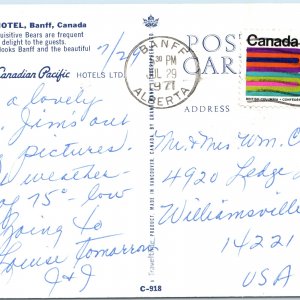 HOTEL, Banff, Canada
uisitive Bears are frequent
delight to the guests.
looks Banff and the beautiful
7/29
Canadian Pacific HOTELS LTD.
a lovely
Jim's out
pictures.
weather
of 75° - low
going to
Louise tomorrow
J&J
C-918
BANFF
30 PM
JL 29
1971
ALBERTA
POS
CAR
ADDRESS
Canada
BRITISH COLUMBIA
Mr. & Mrs Wm. C
4920 Ledge
Williamsville
14221
USA